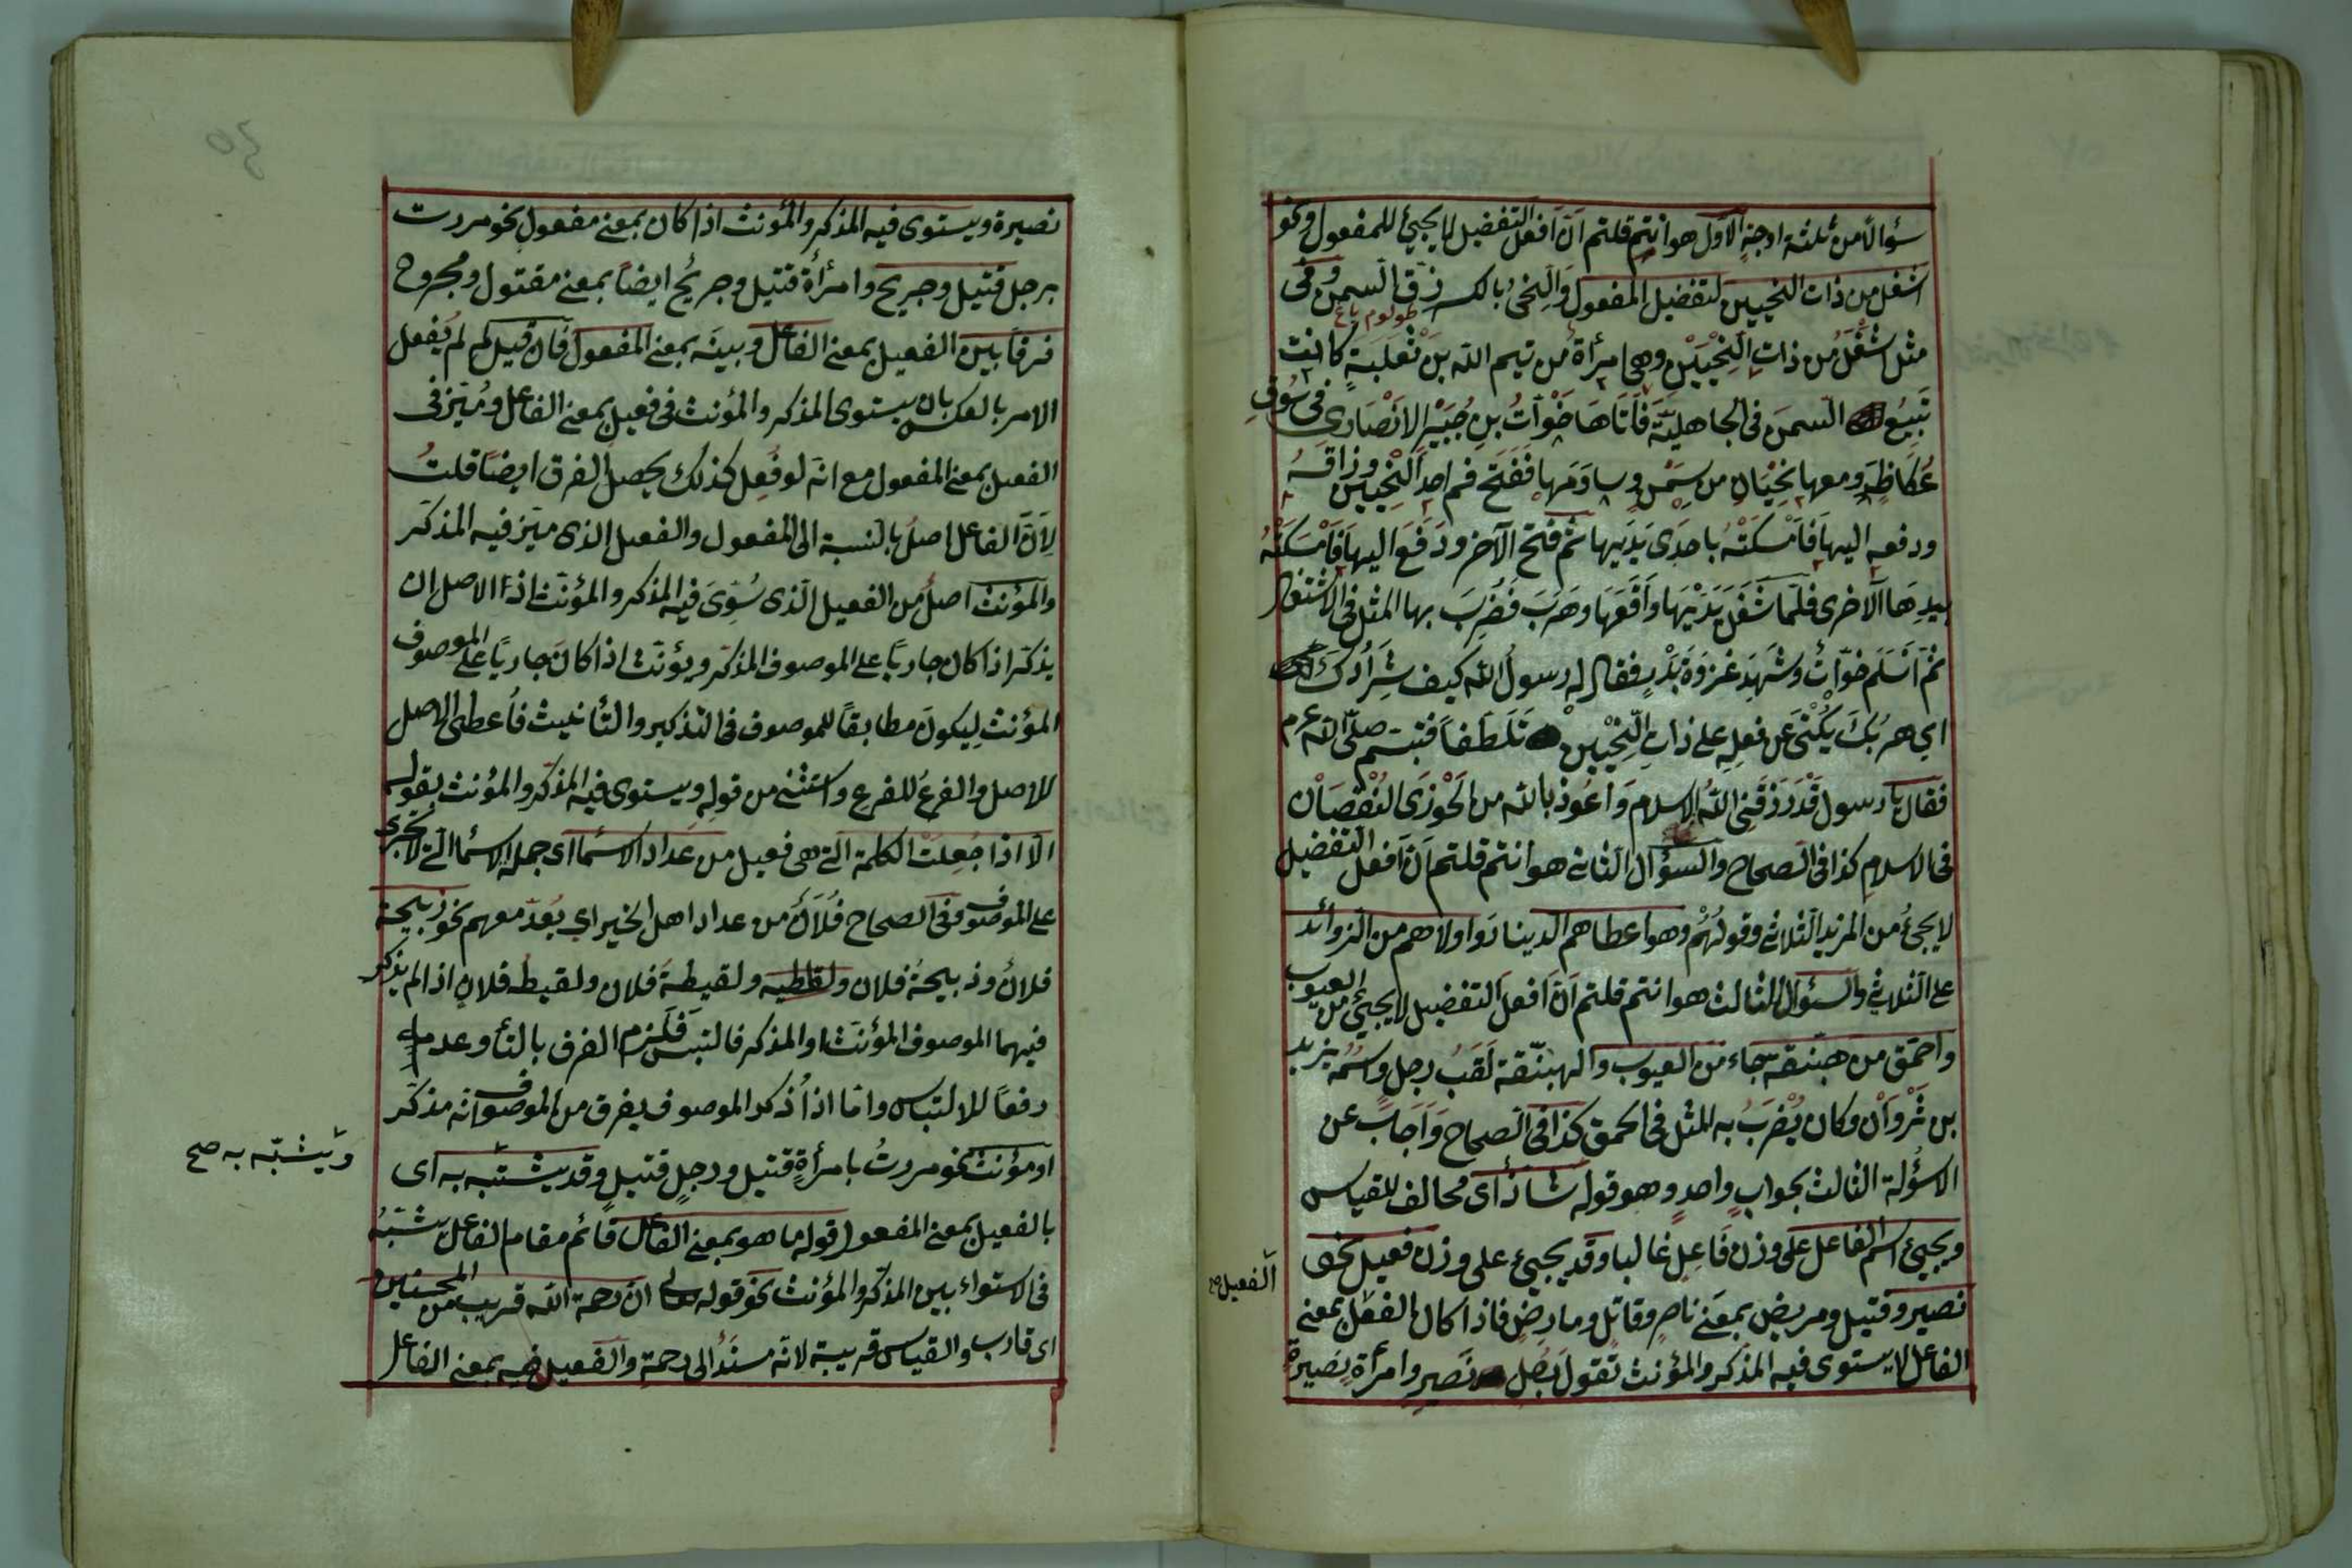 سؤالا من ثلثة اوجه الاول هو انتم قلتم ان افعل التفضيل لا يجيئ للمفعول ونحو
اشغل من ذات النحيين لتفضيل المفعول والنحى بالكسر زق السمن وفى
طولوم ياغ
مثل اشغل من ذات النحيين وهى امرأة من تيم الله بن ثعلبة كانت
تبيع السمن فى الجاهلية فاتاها خوات بن جبير الانصارى فى سوق
عكاظ ومعها نحيان من سمن وساومها ففتح فم احد النحيين وذاقه
ودفعه اليها فامسكته باحدى يديها ثم فتح الآخر ودفع اليها فامسكته
بيدها الاخرى فلما شغل يديها واقعها وهرب فضرب بها المثل فى الاشتغال
ثم اسلم خوات وشهد غزوة بدر فقال له رسول الله كيف شرادك
اي هربك يكنى عن فعله على ذات النحيين تلطفا فتبسم صلى الله عم
فقال يا رسول قد رزقنى الله الاسلام واعوذ بالله من الحوزى النقصان
فى الاسلام كذا فى الصحاح والسؤال الثانى هو انتم قلتم ان افعل التفضيل
لا يجئ من المزيد الثلاثى وقولهم وهو اعطاهم الدينار واولاهم من الزوائد
على الثلاثى والسئوال الثالث هو انتم قلتم ان افعل التفضيل لا يجيئ من العيوب
واحمق من هبنقة جاء من العيوب والهبنقة لقب رجل واسمه يزيد
بن ثروان وكان يضرب به المثل فى الحمق كذا فى الصحاح واجاب عن
الاسؤلة الثالث بجواب واحد وهو قوله شاذ اى مخالف للقياس
ويجيئ اسم الفاعل على وزن فاعل غالبا وقد يجيئ على وزن فعيل نحو
نصير وقتيل ومريض بمعنى ناصر وقاتل ومارض فاذا كان الفعل بمعنى
الفعيل صح
الفاعل لا يستوى فيه المذكر والمؤنث تقول رجل نصير وامرأة نصيرة
نصيرة ويستوى فيه المذكر والمؤنث اذا كان بمعنى مفعول نحو مررت
برجل قتيل وجريح وامرأة قتيل وجريح ايضا بمعنى مقتول ومجروح
فرقا بين الفعيل بمعنى الفاعل وبينه بمعنى المفعول فان قيل لم لم يفعل
الامر بالعكس بان يستوى المذكر والمؤنث فى فعيل بمعنى الفاعل وميز فى
الفعيل بمعنى المفعول مع انه لو فعل كذلك يحصل الفرق ايضا قلت
لان الفاعل اصل بالنسبة الى المفعول والفعيل الذى ميز فيه المذكر
والمؤنث اصل من الفعيل الذى سوى فيه المذكر والمؤنث اذ الاصل ان
يذكر اذا كان جاريا على الموصوف المذكر ويؤنث اذا كان جاريا على الموصوف
المؤنث ليكون مطابقا للموصوف فى التذكير والتأنيث فاعطى الاصل
للاصل والفرع للفرع واستثنى من قوله ويستوى فيه المذكر والمؤنث بقوله
الا اذا جعلت الكلمة التى هى فعيل من عداد الاسماء اى جملة الاسماء التى لا تجرى
على الموصوف وفى الصحاح فلان من عداد اهل الخير اي يعد معهم نحو ذبيحة
فلان وذبيحة فلان ولقطيه ولقيطة فلان ولقيطه فلان اذا لم يذكر
فيهما الموصوف المؤنث او المذكر فالتبس فلزم الفرق بالتأ وعدمها
دفعا للالتباس واما اذا ذكر الموصوف يفرق من الموصوف انه مذكر
او مؤنث نحو مررت بامرأة قتيل ورجل قتيل وقد يشتبه به اى
ويشبه به صح
بالفعيل بمعنى المفعول قوله ما هو بمعنى الفاعل قائم مقام الفاعل يشبه
فى الاستواء بين المذكر والمؤنث نحو قوله تعالى ان رحمة الله قريب من المحسنين
اى قارب والقياس قريبة لانه مسند الى رحمة والفعيل فيه بمعنى الفاعل